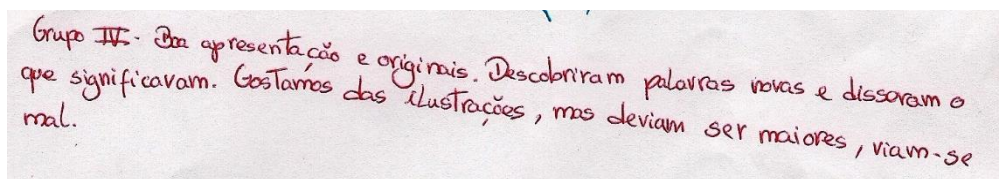 Grupo IV. Boa apresentação e originais. Descobriram palavras novas e disseram o
que significavam. Gostamos das ilustrações, mas deviam ser maiores, viam-se
mal.